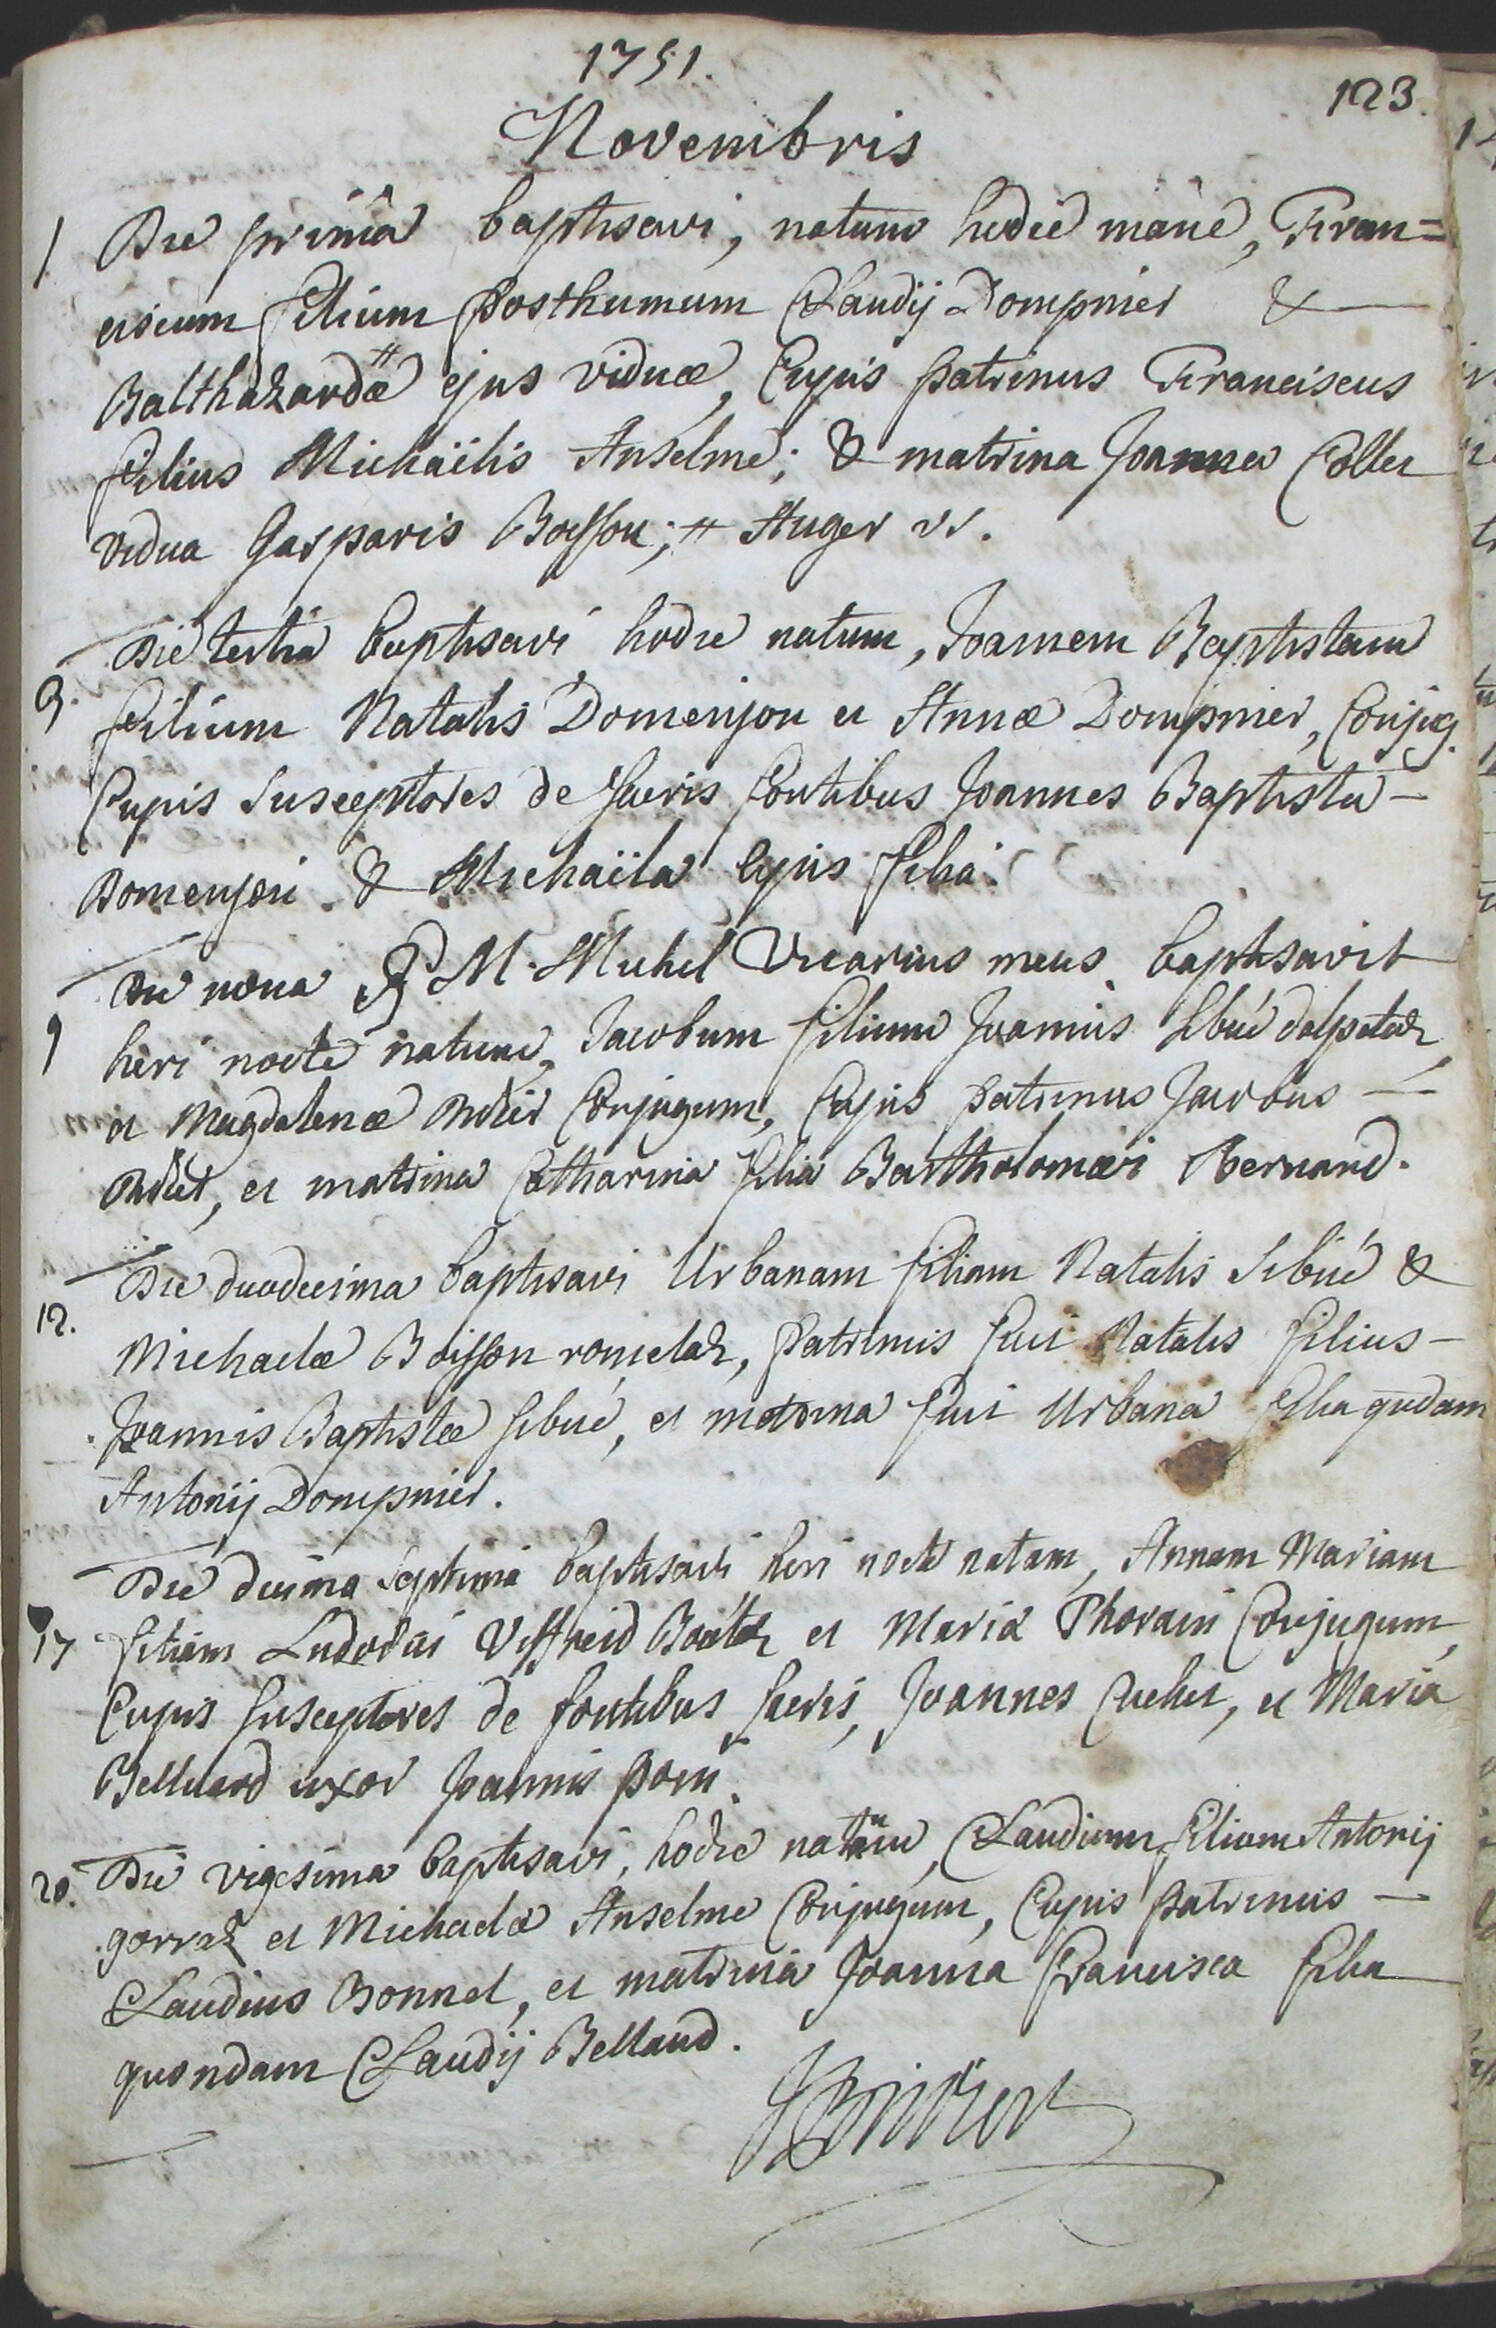 1751.
123.
Novembris
1 Die primâ baptisavi, natum hodie mane, Fran=
ciscum filium posthumum Claudij Dompnier &
Balthazardæ # ejus viduæ, Cujus patrinus Franciscus
filius Michaëlis Anselme; & matrina Joanna Collet
vidua Gasparis Boisson; # Auger vs.
3. Die tertia baptisavi hodie natum, Joannem Baptistam
filium Natalis Domenjon et Annæ Dompnier, Conjug.
Cujus Susceptores de sacris fontibus Joannes Baptista
Domenjon & Michaëla ejus filia.
9 Die nona R M. Michel Vicarius meus baptisavit
heri nocte natum, Jacobum filium Joannis Sibué dalpetaz
et Magdalenæ Didier Conjugum, Cujus patrinus Jacobus
Didier, et matrina Catharina filia Bartholomæi Bernard.
12. Die duodecima baptisavi Urbanam filiam Natalis Sibué &
Michaelæ Boisson rometaz, patrinus fuit Natalis filius
Joannis Baptistæ Sibué, et matrina fuit Urbana filia qudam
Antonij Dompnier.
17 Die decima septima baptisavi heri nocte natam, Annam Mariam
filiam Ludovici Viffreid et Mariæ Thorain Conjugum,
Cujus susceptores de fontibus sacris, Joannes et Maria
Belluard uxor Joannis
20. Die vigesima baptisavi, hodie natum, Claudium filium Antonij
gorraz et Michaelæ Anselme Conjugum, Cujus patrinus
Claudius Bonnel, et matrina Joanna Francisca filia
quondam Claudij Bellaud.